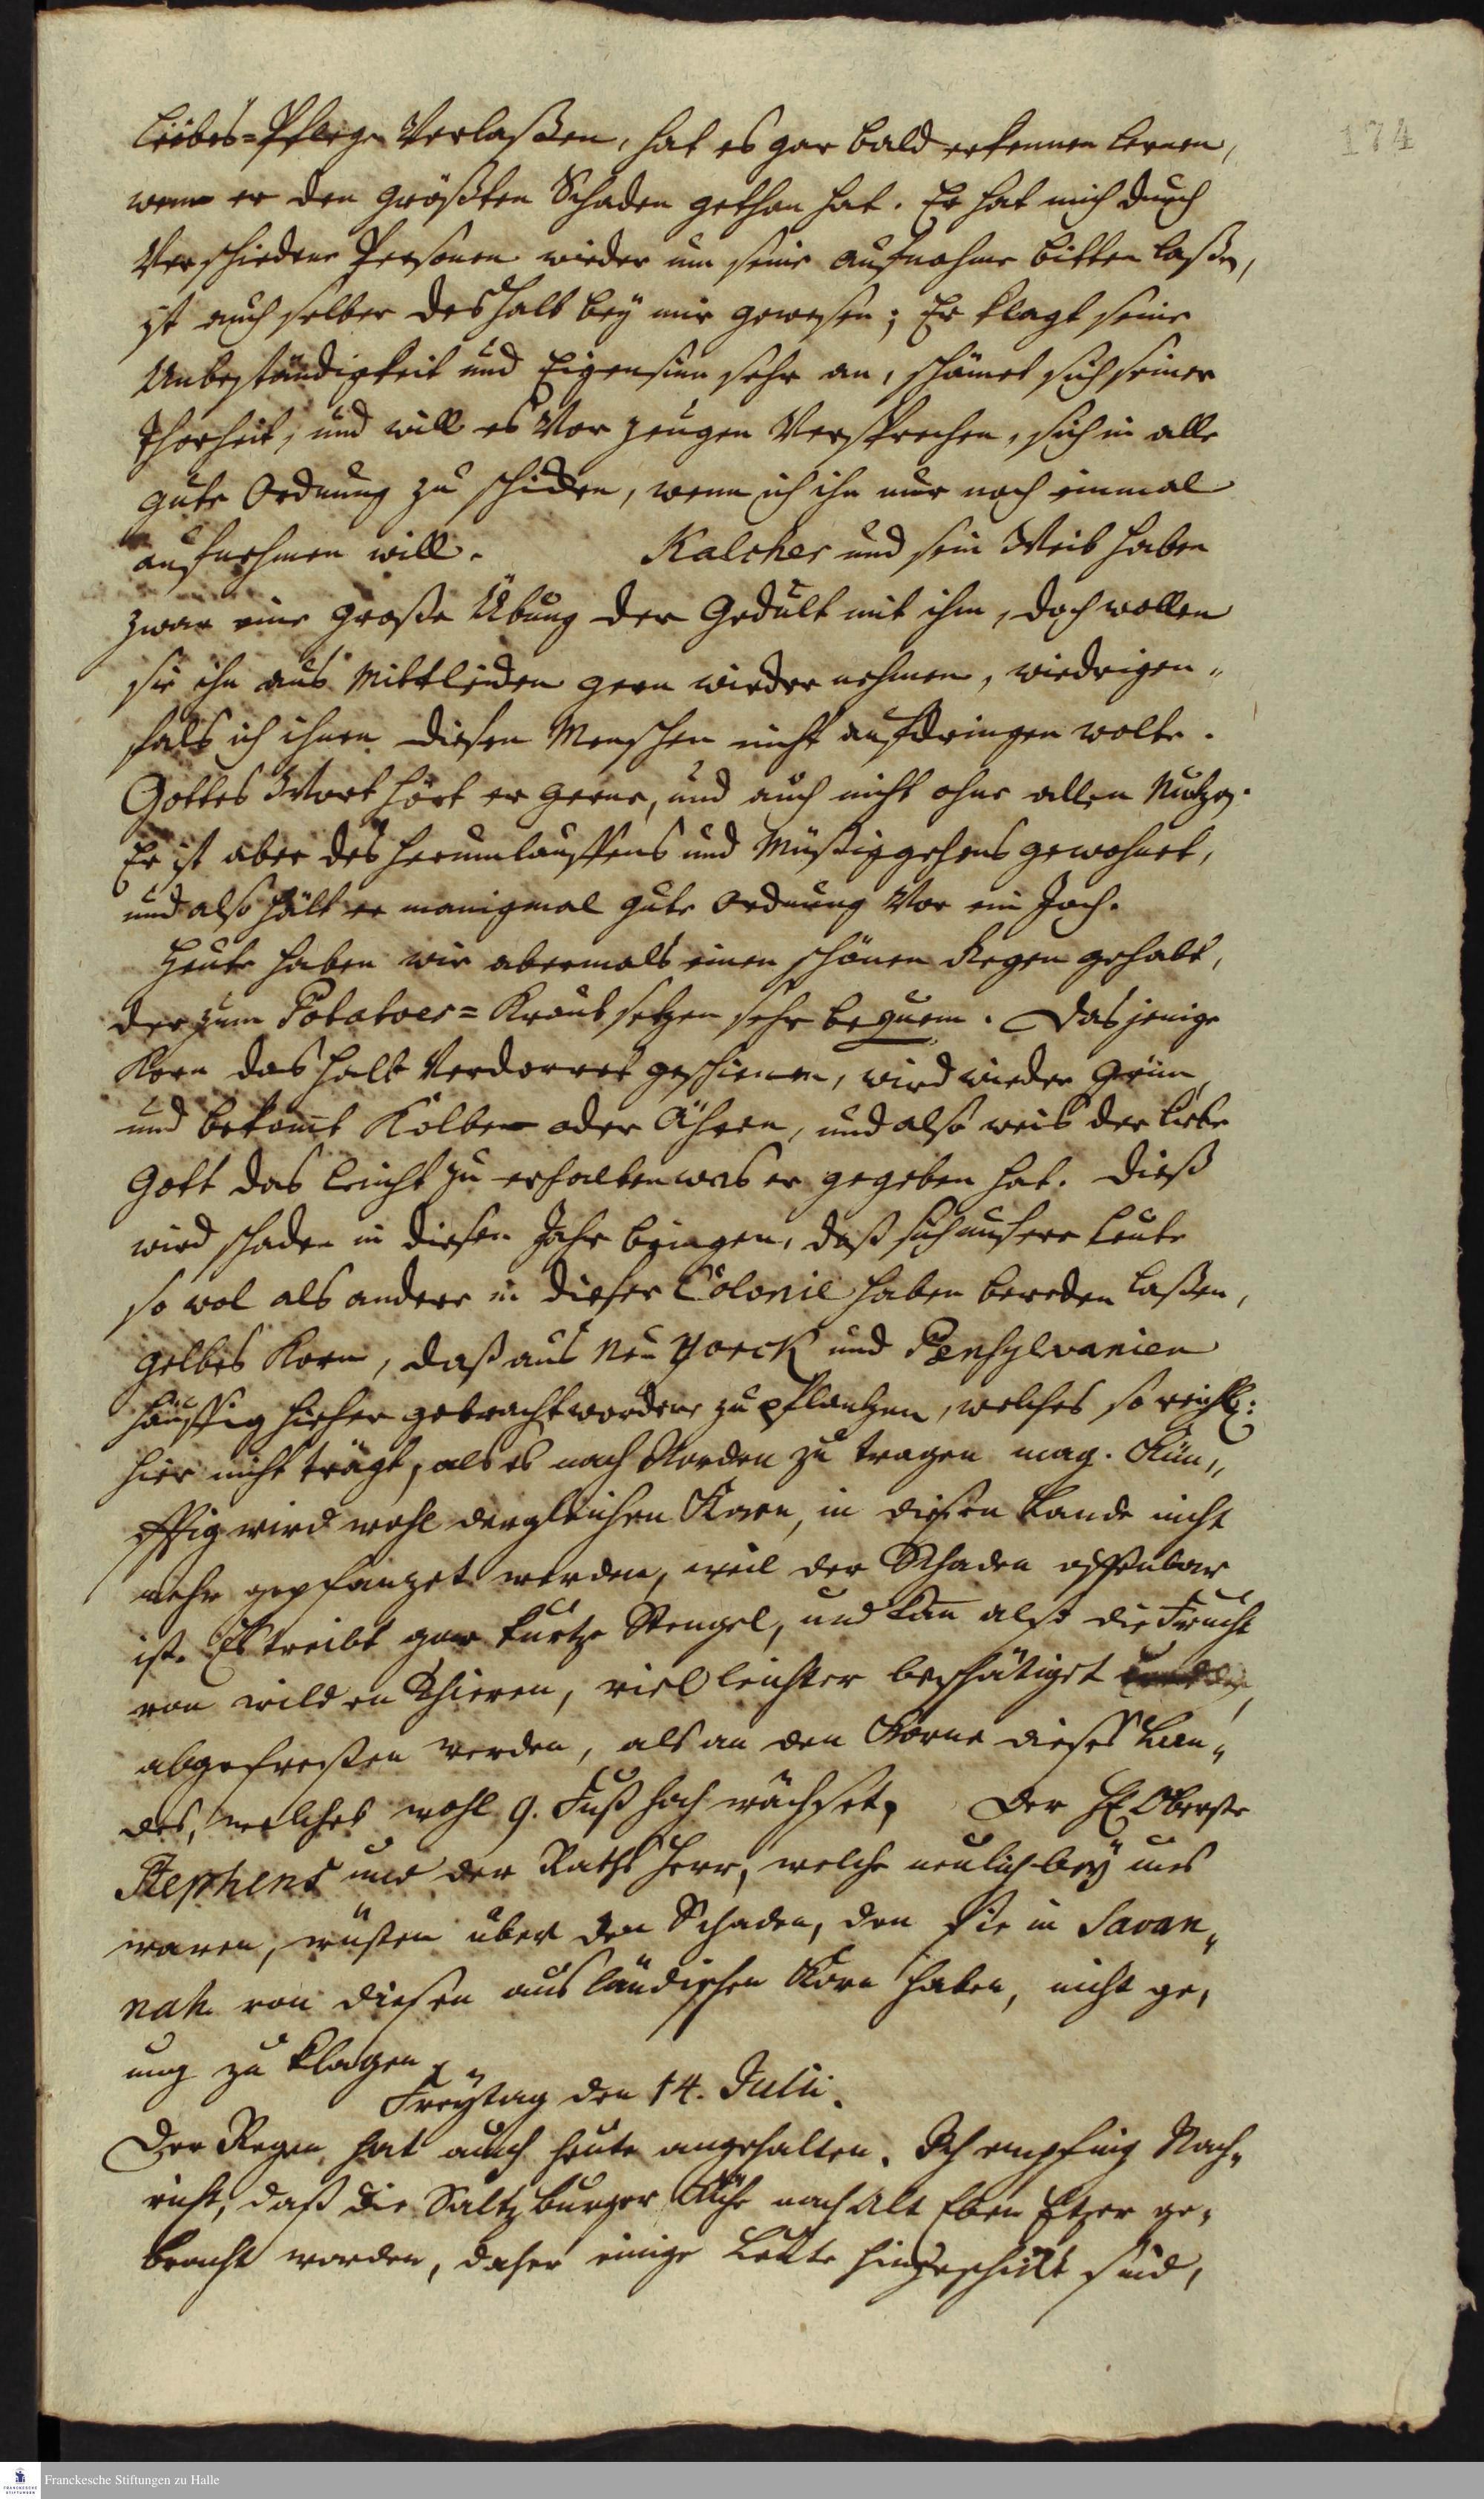 174
Liebes=Pflege Verlaßen, hat es gar bald erkennen lernen,
wem er den größten Schaden gethan hat. Er hat mich durch
Verschiedene Personen wieder um seine aufnahme bitten laßen,
ist auch selber deshalb bey mir gewesen; Er klagt seine
Unbeständigkeit und Eigensinn sehr an, schämet sich seiner
Thorheit, und will es Vor zeugen Versprechen, sich in alle
gute Ordnung zu schicken, wenn ich ihn nur noch einmal
aufnehmen will. Kalcher und sein Weib haben
zwar eine große Übung der Gedult mit ihm, doch wollen
sie ihn aus Mittleiden gern wieder nehmen, wiedrigen„
fals ich ihnen diesen Menschen nicht aufdringen wolte.
Gottes Wort hört er gerne, und auch nicht ohne allen Nutzen.
Er ist aber des herumlauffens und Müßiggehens gewohnet,
und also hält er manigmal gute ordnung Vor ein Joch.
Heute haben wir abermals einen schönen Regen gehabt,
der zum Potatoes=Kraut setzen sehr bequem. Dasjenige
Korn das halb Verdorret geschienen, wird wieder Grün,
und bekomt Kolben oder Ähren, und also weis der liebe
Gott das leicht zu erhalten was er gegeben hat. Dieß
wird schaden in diesen Jahr bringen, daß sich unsere Leute
so wol als andere in dieser Colonie haben bereden laßen,
gelbes Korn, daß aus Neu Yorck und Pensylvanien
häuffig hieher gebracht worden, zu pflantzen, welches so reichl:
hier nicht trägt, als es nach Norden zu tragen mag. Kün„
fftig wird wohl dergleichen Korn, in diesen Lande nicht
mehr gepfanzet werden, weil der Schaden offenbar
ist. Es treibt gar kurtze Stengel, und kan also die Frucht
von wilden Thieren, viel leichter beschätiget
abgefreßen werden, als an den Korne dieses Lan„
des, welches wohl 9. Fuß hoch wächset. Der H Oberste
Stephens und der Raths Herr, welche neulich bey uns
waren, wusten über den Schaden, den sie in Savan„
nah von diesen ausländischen Korn haben, nicht ge„
nug zu klagen
Freytag den 14. Julii.
Der Regen hat auch heute angehalten. Ich empfing Nach„
richt, daß die Saltzburger Kühe nach Alt Eben Ezer ge„
bracht worden, daher einige Leute hingeschickt sind,
FRANCKESCHE STIFTUNGEN
Franckesche Stiftungen zu Halle